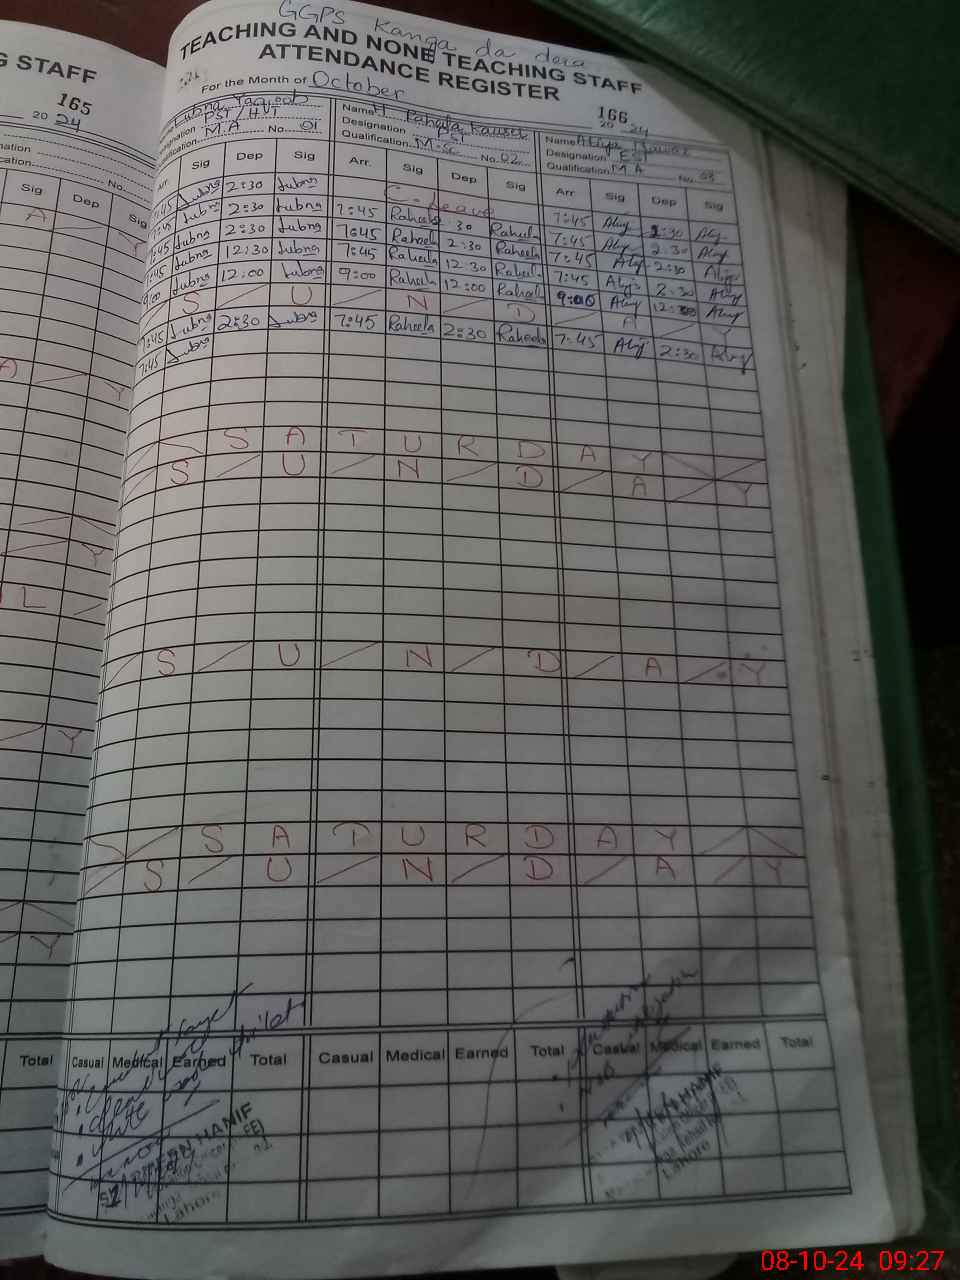 GGPS Kanga da dera
TEACHING AND NONE TEACHING STAFF
ATTENDANCE REGISTER
For the Month of October
G STAFF
165
20 24
166
24
Lubna Yaqoob
Designation PST / HT
Qualification M.A No. 01
Name Raheela Kausar
Designation
Qualification M.Sc No. 02
Name Aliya Nawaz
Designation EST
Qualification M A No. 03
Arr. Sig Dep Sig Arr. Sig Dep Sig Arr Sig Dep Sig
7:45 Lubna 2:30 Lubna C-Leave 7:45 Aliy 2:30 Aliy
7:45 Lubna 2:30 Lubna 7:45 Raheela 30 Raheela 7:45 Aliy 2:30 Aliy
7:45 Lubna 2:30 Lubna 7:45 Raheela 2:30 Raheela 7:45 Aliy 2:30 Aliy
7:45 Lubna 12:30 Lubna 7:45 Raheela 12:30 Raheela 7:45 Aliy 2:30 Aliy
9:00 Lubna 12:00 Lubna 9:00 Raheela 12:00 Raheela 9:00 Aliy 12:00 Aliy
S U N D A Y
7:45 Lubna 2:30 Lubna 7:45 Raheela 2:30 Raheela 7:45 Aliy 2:30 Aliy
7:45 Lubna
S A T U R D A Y
S U N D A Y
S U N D A Y
S A T U R D A Y
S U N D A Y
Total Casual Medical Earned Total Casual Medical Earned Total Casual Medical Earned Total
HANIF
Lahore
HANIF
Lahore
Designation
No.
Sig Dep
A
Y
L
Y
Y
08-10-24 09:27